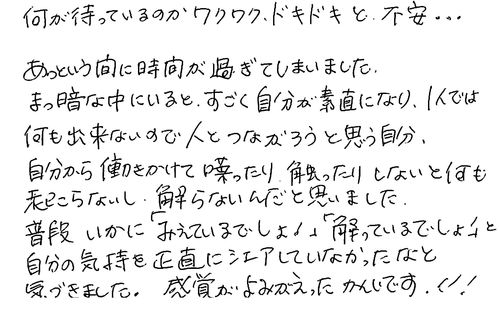 何が待っているのかワクワク、ドキドキと、不安・・・
あっという間に時間が過ぎてしまいました。
まっ暗な中にいると、すごく自分が素直になり、1人では
何も出来ないので人とつながろうと思う自分、
自分から働きかけて喋ったり、触ったりしないと何も
起こらないし、解らないんだと思いました。
普段いかに「みえているでしょ!」「解っているでしょ!」と
自分の気持を正直にシェアしていなかったなと
気づきました。感覚がよみがえったかんじです。